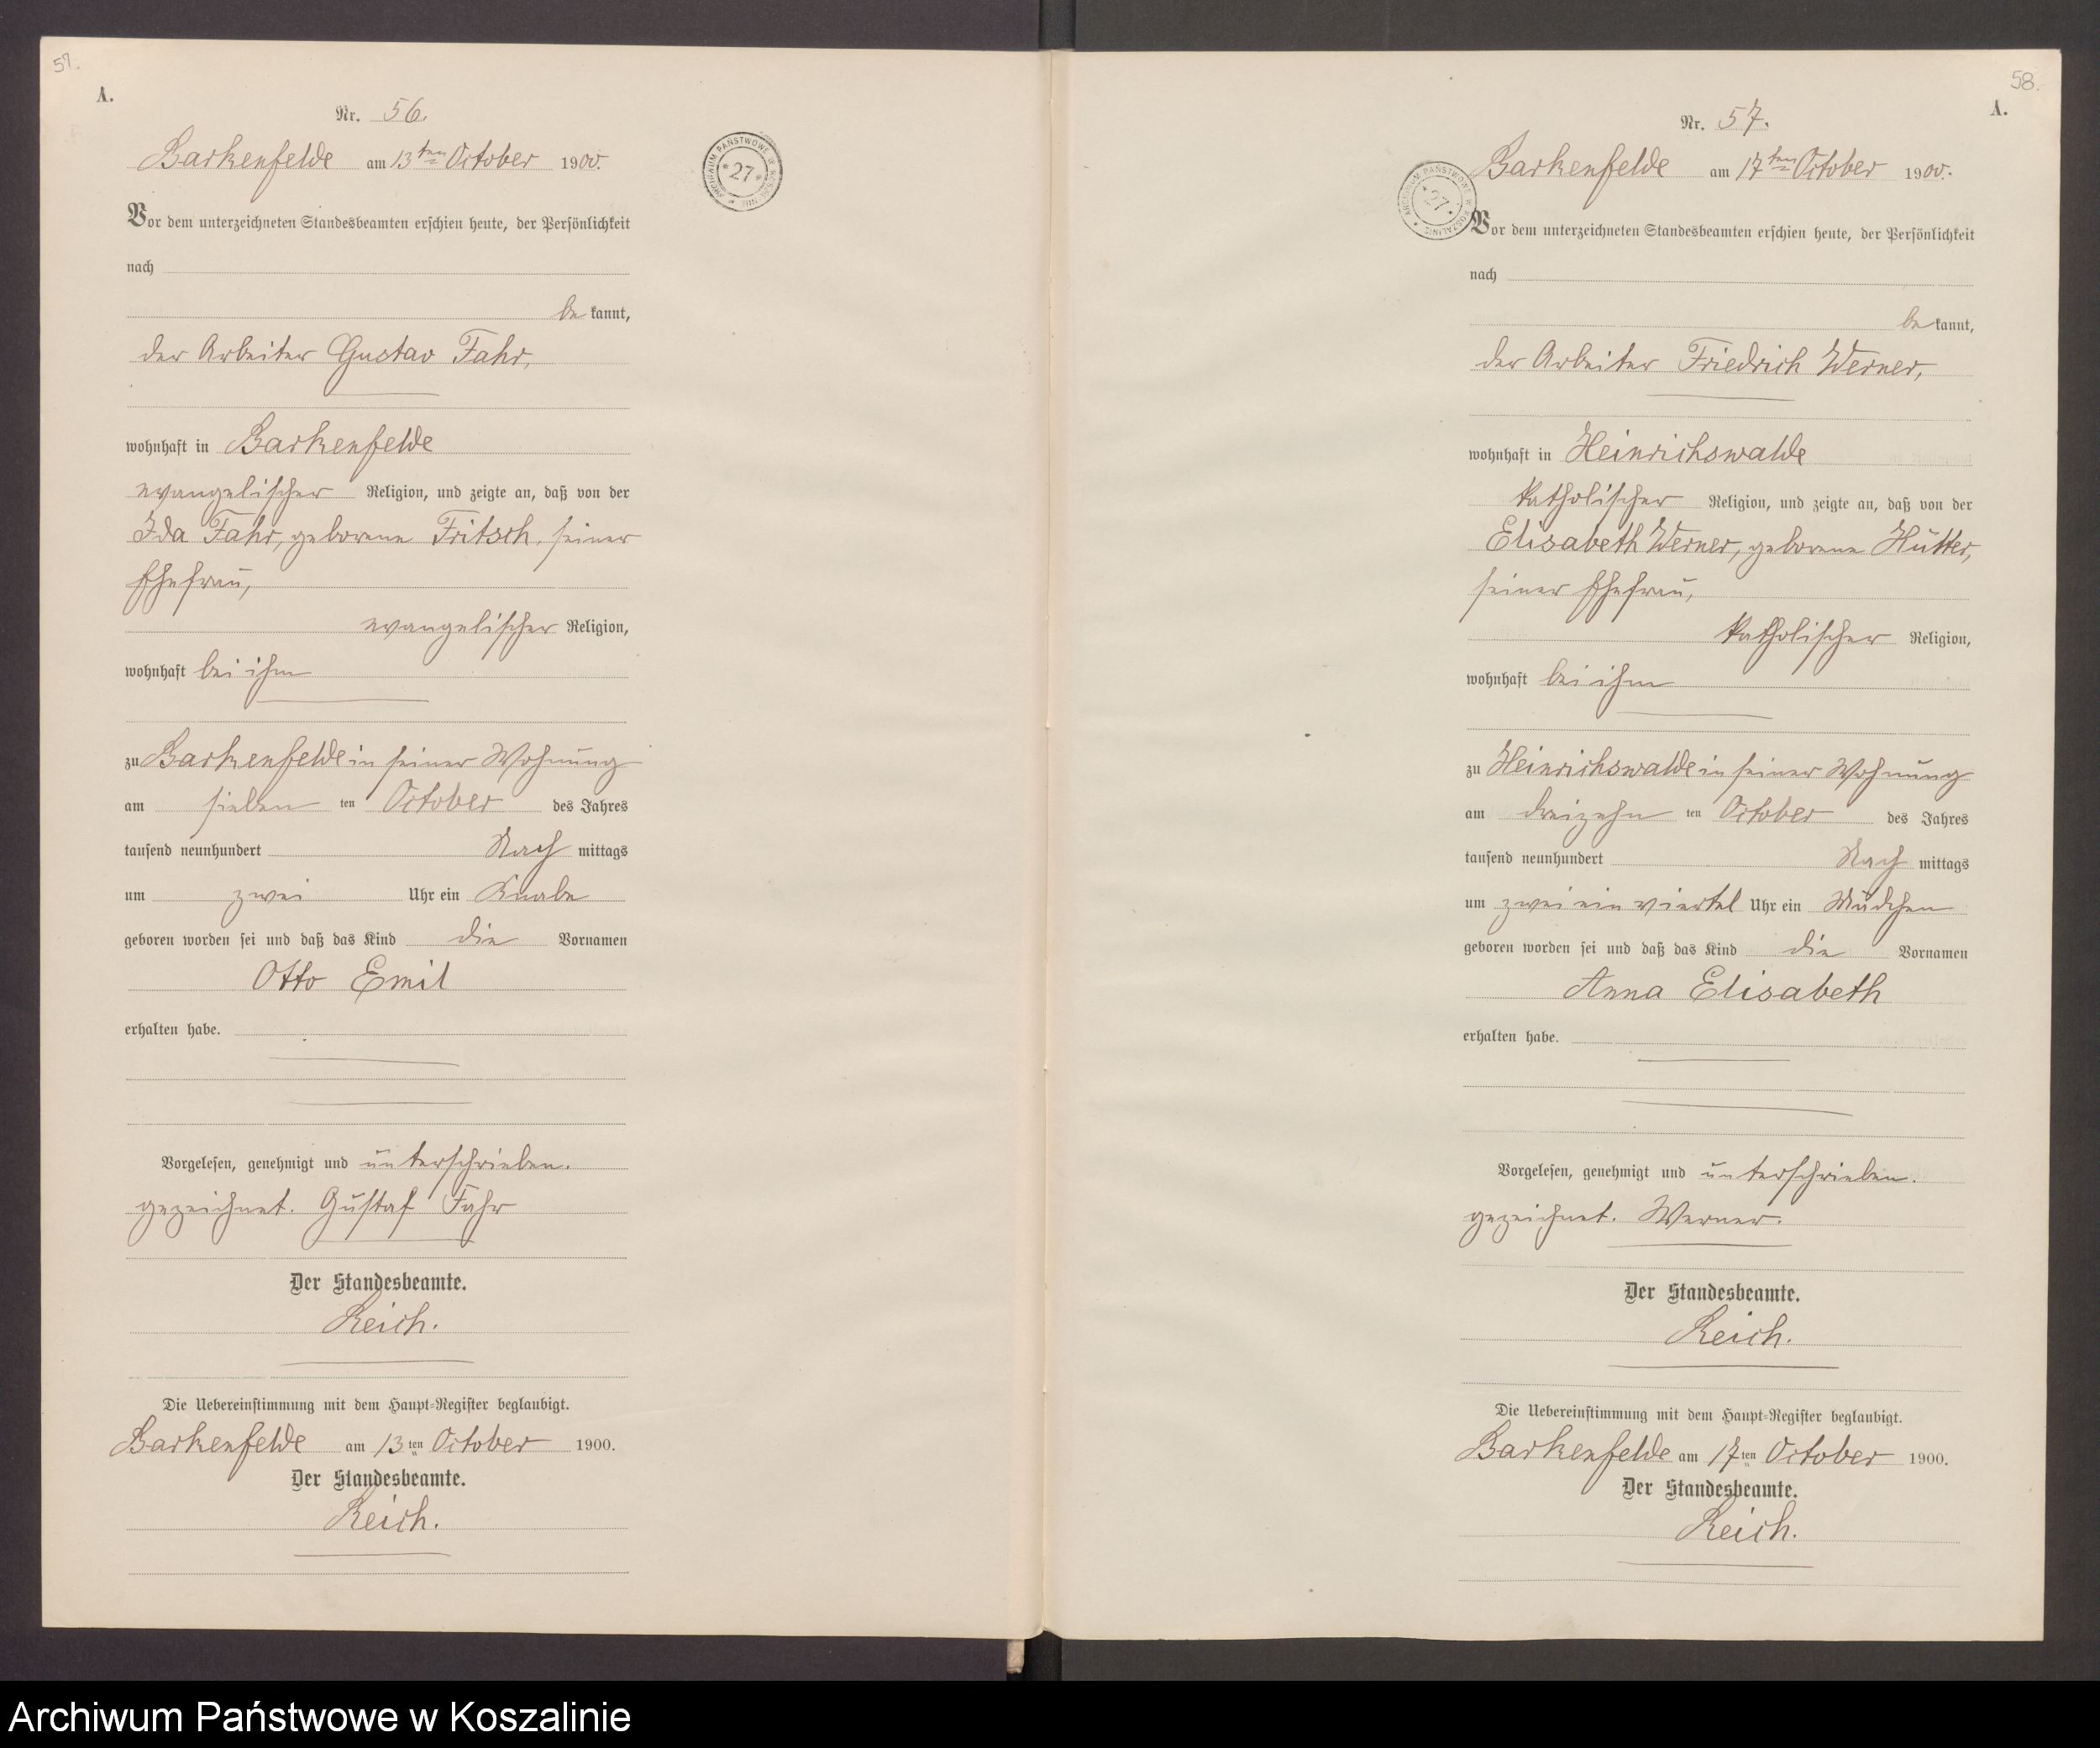 57.
A.
Nr. 56.
Barkenfelde am 13ten October 1900.
Vor dem unterzeichneten Standesbeamten erschien heute, der Persönlichkeit
nach
be kannt,
der Arbeiter Gustav Fahr,
wohnhaft in Barkenfelde
evangelischer Religion, und zeigte an, daß von der
Ida Fahr, geborene Fritsch, seiner
Ehefrau,
evangelischer Religion,
wohnhaft bei ihm
zu Barkenfelde in seiner Wohnung
am sieben ten October des Jahres
tausend neunhundert Nach mittags
um zwei Uhr ein Knabe
geboren worden sei und daß das Kind die Vornamen
Otto Emil
erhalten habe.
Vorgelesen, genehmigt und unterschrieben.
gezeichnet. Gustaf Fahr
Der Standesbeamte.
Reich.
Die Uebereinstimmung mit dem Haupt-Register beglaubigt.
Barkenfelde am 13ten October 1900.
Der Standesbeamte.
Reich.
ARCHIWUM PAŃSTWOWE W KOSZALINIE
*27*
58.
A.
Nr. 57.
Barkenfelde am 17ten October 1900.
ARCHIWUM PAŃSTWOWE W KOSZALINIE
*27*
Vor dem unterzeichneten Standesbeamten erschien heute, der Persönlichkeit
nach
be kannt,
der Arbeiter Friedrich Werner,
wohnhaft in Heinrichswalde
katholischer Religion, und zeigte an, daß von der
Elisabeth Werner, geborene Hütter,
seiner Ehefrau,
katholischer Religion,
wohnhaft bei ihm
zu Heinrichswalde in seiner Wohnung
am dreizehn ten October des Jahres
tausend neunhundert Nach mittags
um zwei ein viertel Uhr ein Mädchen
geboren worden sei und daß das Kind die Vornamen
Anna Elisabeth
erhalten habe.
Vorgelesen, genehmigt und unterschrieben.
gezeichnet. Werner.
Der Standesbeamte.
Reich.
Die Uebereinstimmung mit dem Haupt-Register beglaubigt.
Barkenfelde am 17ten October 1900.
Der Standesbeamte.
Reich.
Archiwum Państwowe w Koszalinie